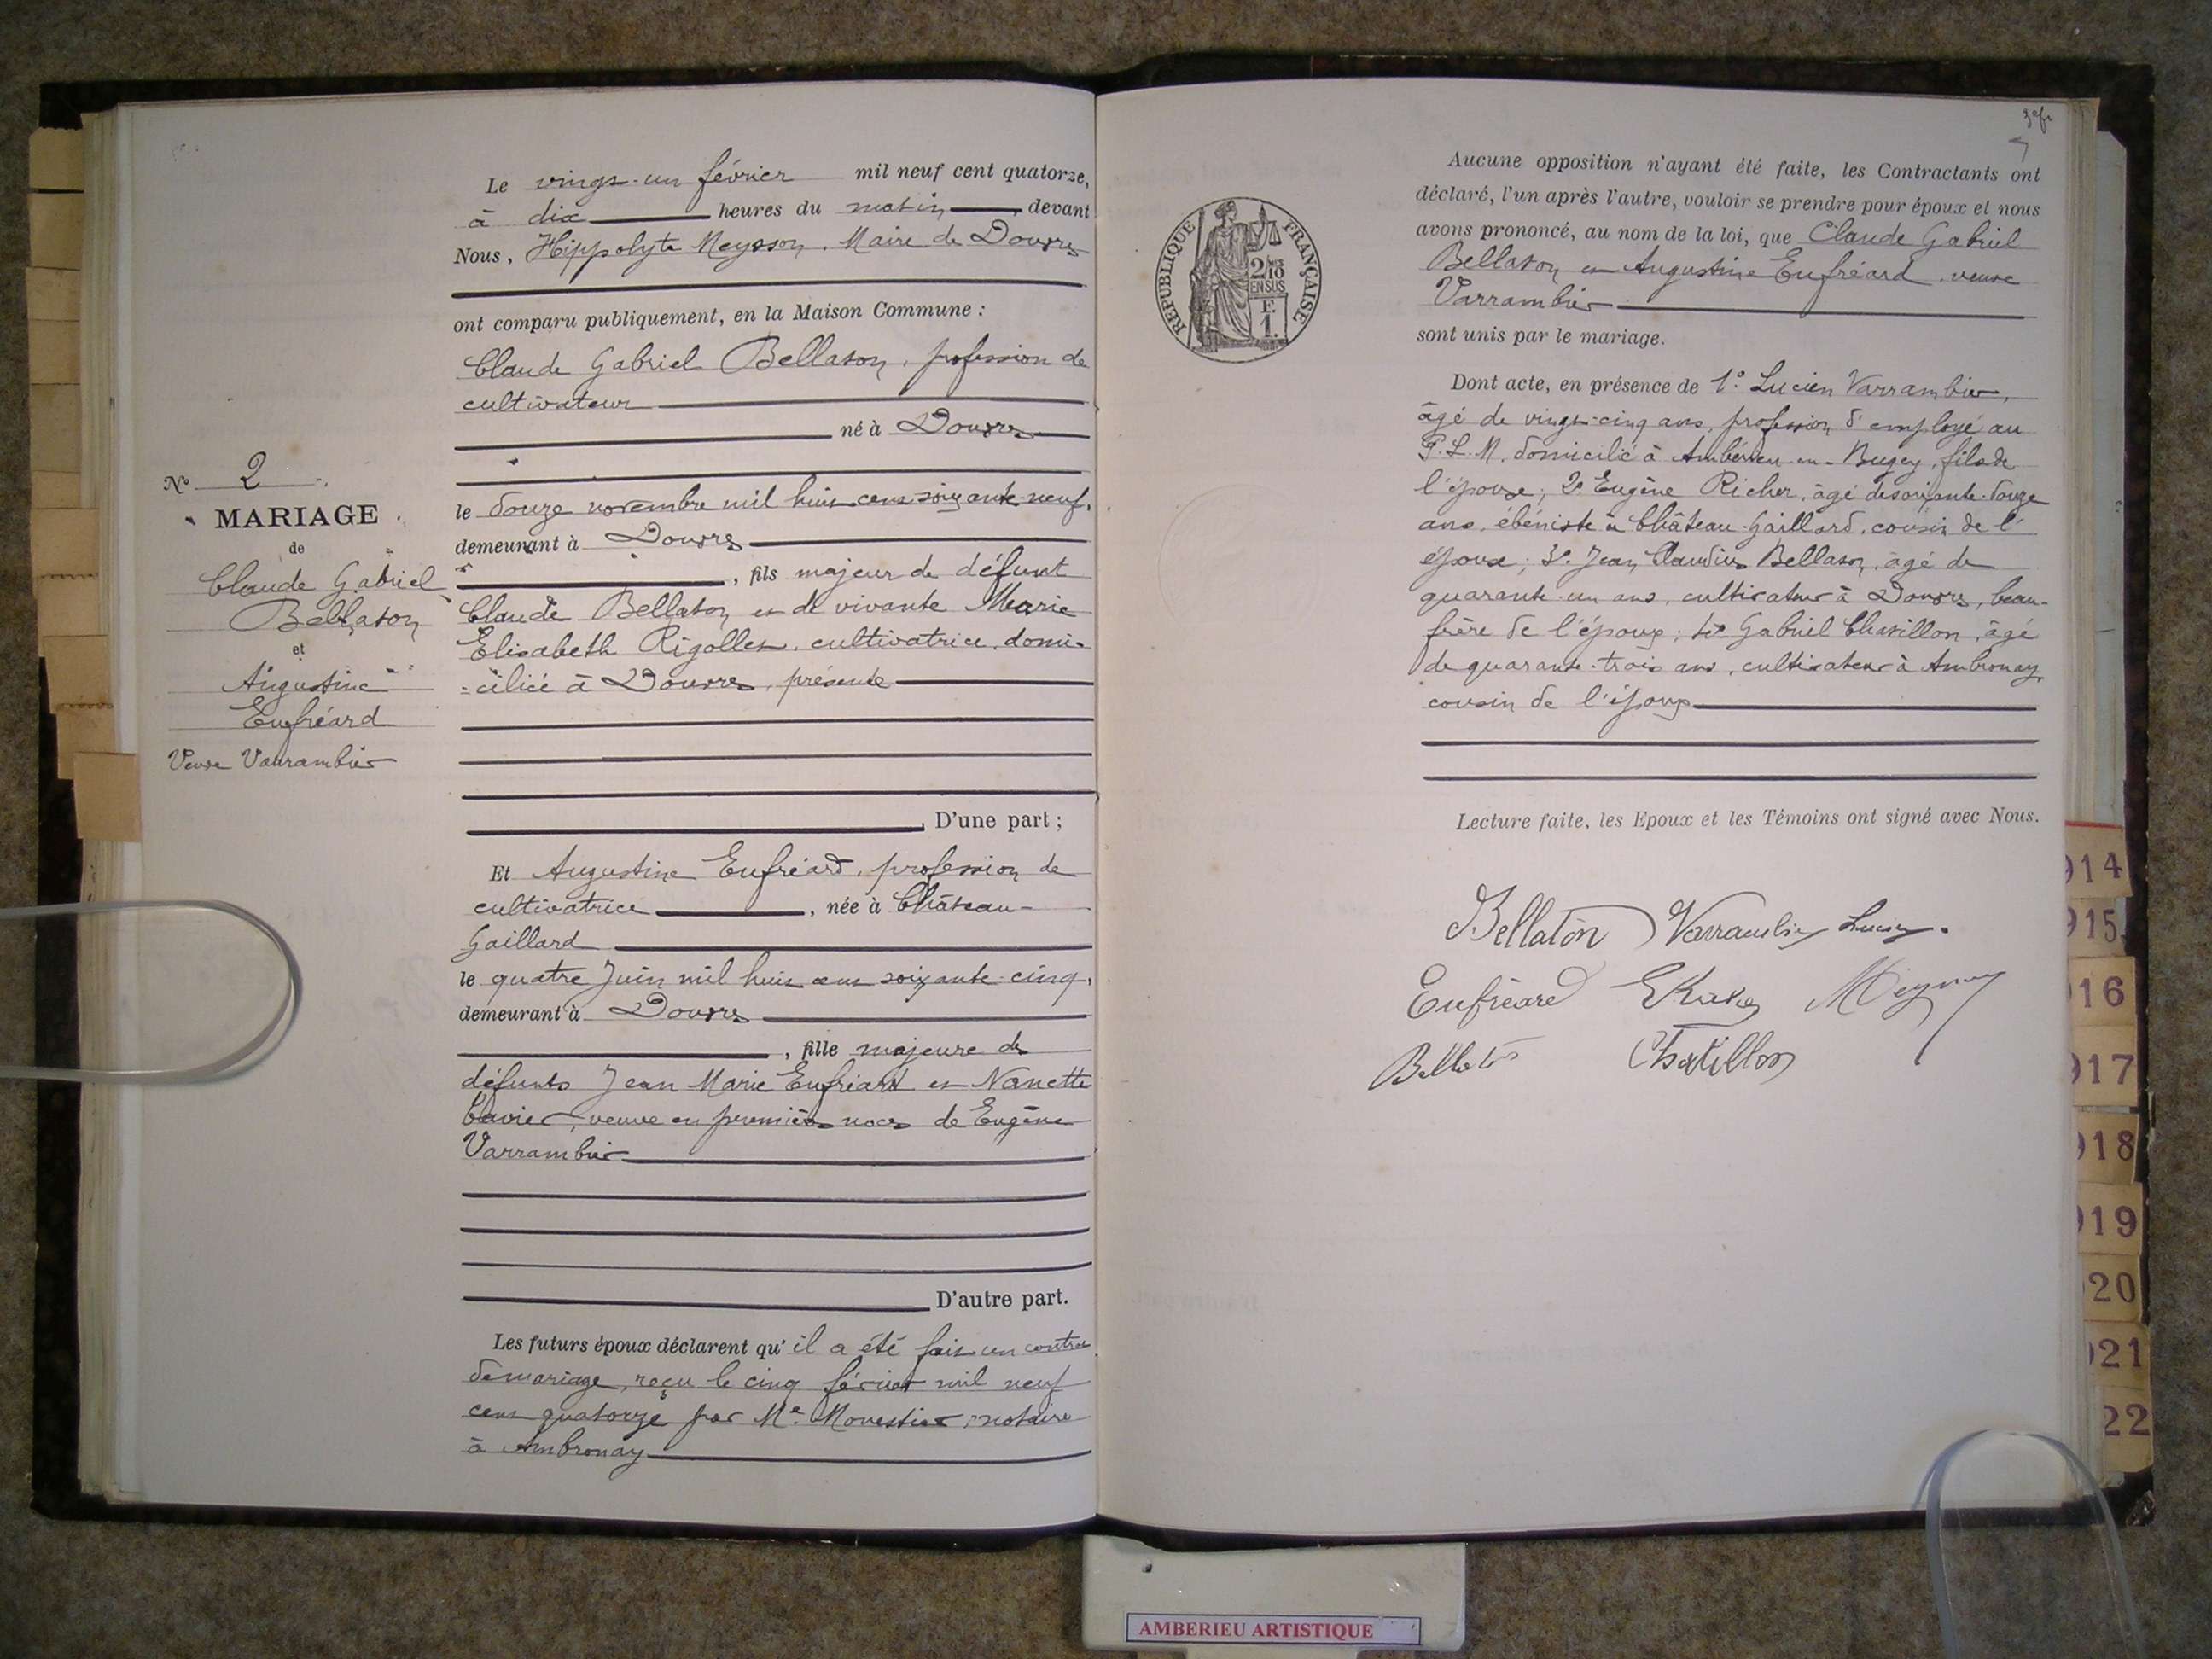 Le vingt-un février mil neuf cent quatorze,
à dix heures du matin, devant
Nous, Hippolyte Meysson, Maire de Douvres
ont comparu publiquement, en la Maison Commune :
Claude Gabriel Bellaton, profession de
cultivateur
né à Douvres
No 2
MARIAGE
de
Claude Gabriel
Bellaton
et
Augustine
Eufréard
Veuve Varrambier
le douze novembre mil huit cent soixante-neuf,
demeurant à Douvres
, fils majeur de défunt
Claude Bellaton et de vivante Marie
Elisabeth Rigollet, cultivatrice, domi-
=ciliée à Douvres, présente
D'une part ;
Et Augustine Eufréard, profession de
cultivatrice, née à Château-
Gaillard
le quatre Juin mil huit cent soixante-cinq,
demeurant à Douvres
, fille majeure de
défunts Jean Marie Eufréard et Nanette
veuve en premières noces de Eugène
Varrambier
D'autre part.
Les futurs époux déclarent qu'il a été fait un contrat
de mariage, reçu le cinq février mil neuf
cent quatorze par Me Monestier, notaire
à Ambronay
REPUBLIQUE FRANÇAISE
2/10
EN SUS
F.
1.
Aucune opposition n'ayant été faite, les Contractants ont
déclaré, l'un après l'autre, vouloir se prendre pour époux et nous
avons prononcé, au nom de la loi, que Claude Gabriel
Bellaton et Augustine Eufréard, veuve
Varrambier
sont unis par le mariage.
Dont acte, en présence de 1° Lucien Varrambier,
âgé de vingt-cinq ans, profession d'employé au
P.L.M. domicilié à Ambérieu-en-Bugey, fils de
l'épouse ; 2° Eugène Richer, âgé de soixante-douze
ans, ébéniste à Château-Gaillard, cousin de l'
épouse ; 3° Jean Claudius Bellaton, âgé de
quarante-un ans, cultivateur à Douvres, beau-
frère de l'époux ; 4° Gabriel Chatillon, âgé
de quarante-trois ans, cultivateur à Ambronay,
cousin de l'époux
Lecture faite, les Epoux et les Témoins ont signé avec Nous.
Bellaton Varrambier Lucien
Eufréard
Bellaton Chatillon
914
915
916
917
918
919
920
921
22
AMBERIEU ARTISTIQUE